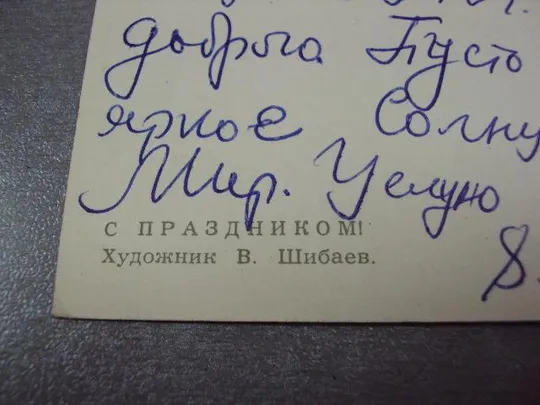 доброго Пусть
яркое Солну
Мир. Целую
С ПРАЗДНИКОМ!
Художник В. Шибаев.
8.